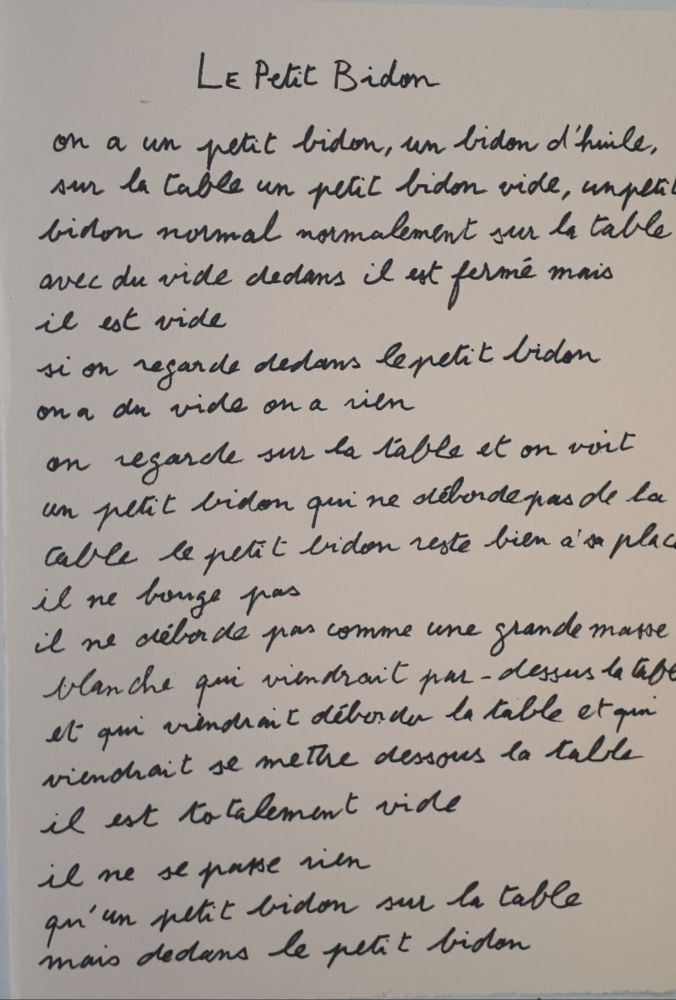 LE Petit Bidon
on a un petit bidon, un bidon d'huile,
sur la table un petit bidon vide, un petit
bidon normal normalement sur la table
avec du vide dedans il est fermé mais
il est vide
si on regarde dedans le petit bidon
on a du vide on a rien
on regarde sur la table et on voit
un petit bidon qui ne déborde pas de la
table le petit bidon reste bien à sa place
il ne bouge pas
il ne déborde pas comme une grande masse
blanche qui viendrait par-dessus la table
et qui viendrait déborder la table et qui
viendrait se mettre dessous la table
il est totalement vide
il ne se passe rien
qu'un petit bidon sur la table
mais dedans le petit bidon